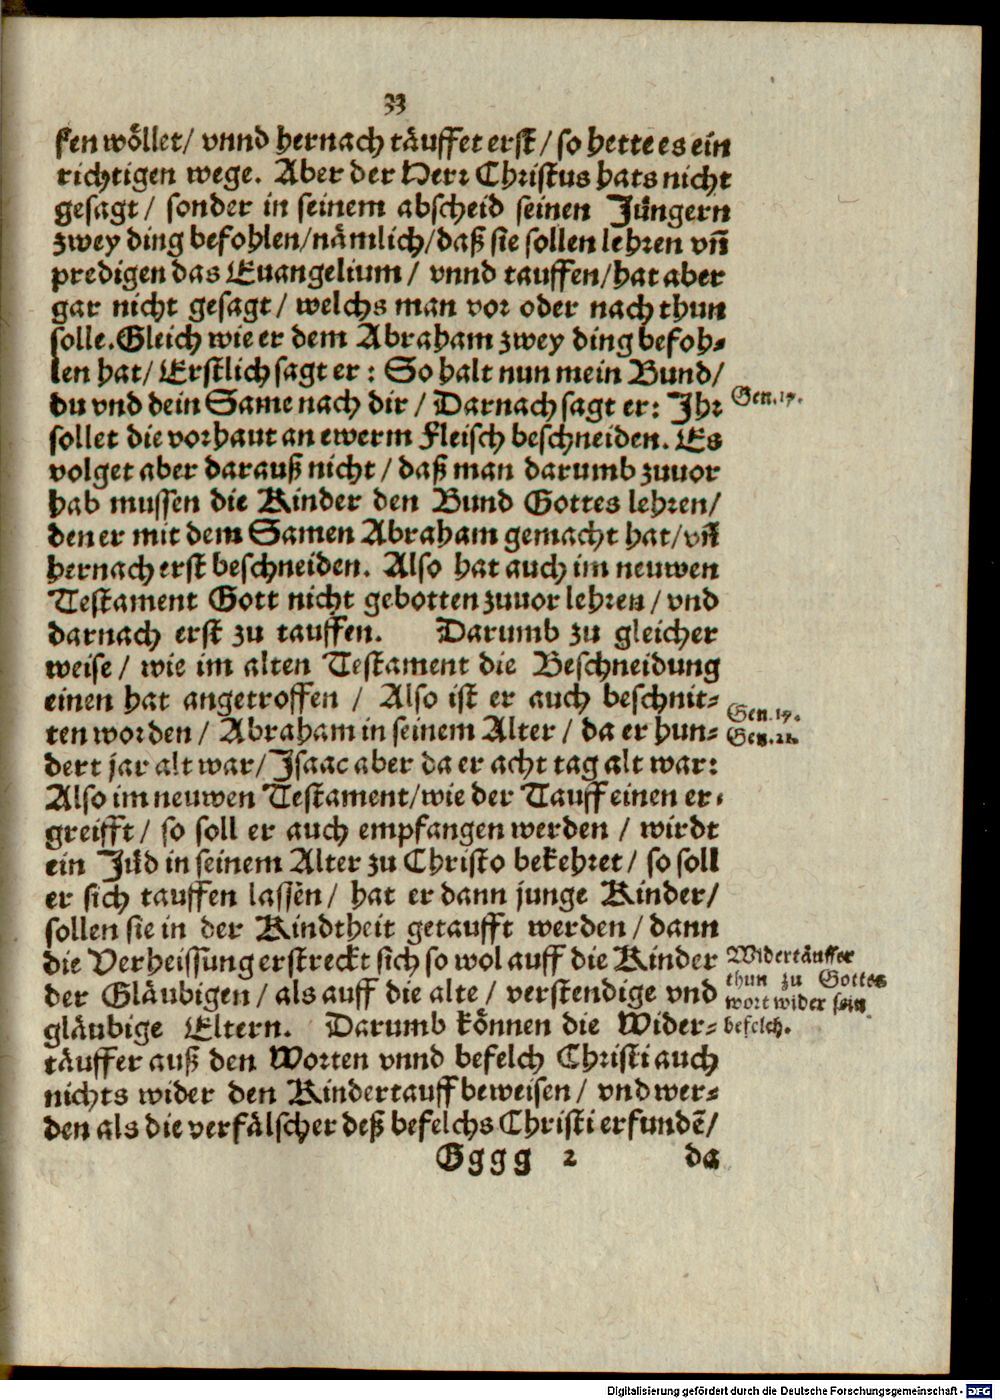 33
ken wöllet/ vnnd hernach täuffet erst/ so hette es ein
richtigen wege. Aber der Herr Christus hats nicht
gesagt/ sonder in seinem abscheid seinen Jüngern
zwey ding befohlen/nämlich/daß sie sollen lehren vñ
predigen das Euangelium/ vnnd tauffen/hat aber
gar nicht gesagt/ welchs man vor oder nach thun
solle. Gleich wie er dem Abraham zwey ding befoh-
len hat/ Erstlich sagt er: So halt nun mein Bund/
du vnd dein Same nach dir/ Darnach sagt er: Ihr
Gen.17.
sollet die vorhaut an ewerm Fleisch beschneiden. Es
volget aber darauß nicht/ daß man darumb zuuor
hab mussen die Kinder den Bund Gottes lehren/
den er mit dem Samen Abraham gemacht hat/vñ
hernach erst beschneiden. Also hat auch im neuwen
Testament Gott nicht gebotten zuuor lehren/ vnd
darnach erst zu tauffen. Darumb zu gleicher
weise/ wie im alten Testament die Beschneidung
einen hat angetroffen/ Also ist er auch beschnit-
Gen.17.
ten worden/ Abraham in seinem Alter/ da er hun-
Gen.21.
dert jar alt war/ Isaac aber da er acht tag alt war:
Also im neuwen Testament/wie der Tauff einen er-
greifft/ so soll er auch empfangen werden/ wirdt
ein Jüd in seinem Alter zu Christo bekehret/ so soll
er sich tauffen lassẽn/ hat er dann junge Kinder/
sollen sie in der Kindtheit getaufft werden/ dann
die Verheissung erstreckt sich so wol auff die Kinder
Widertäuffer
der Gläubigen/ als auff die alte/ verstendige vnd
thun zu Gottes
wort wider sein
gläubige Eltern. Darumb können die Wider-
befelch.
täuffer auß den Worten vnnd befelch Christi auch
nichts wider den Kindertauff beweisen/ vnd wer-
den als die verfälscher deß befelchs Christi erfundẽ/
Gggg 2 da
Digitalisierung gefördert durch die Deutsche Forschungsgemeinschaft - DFG